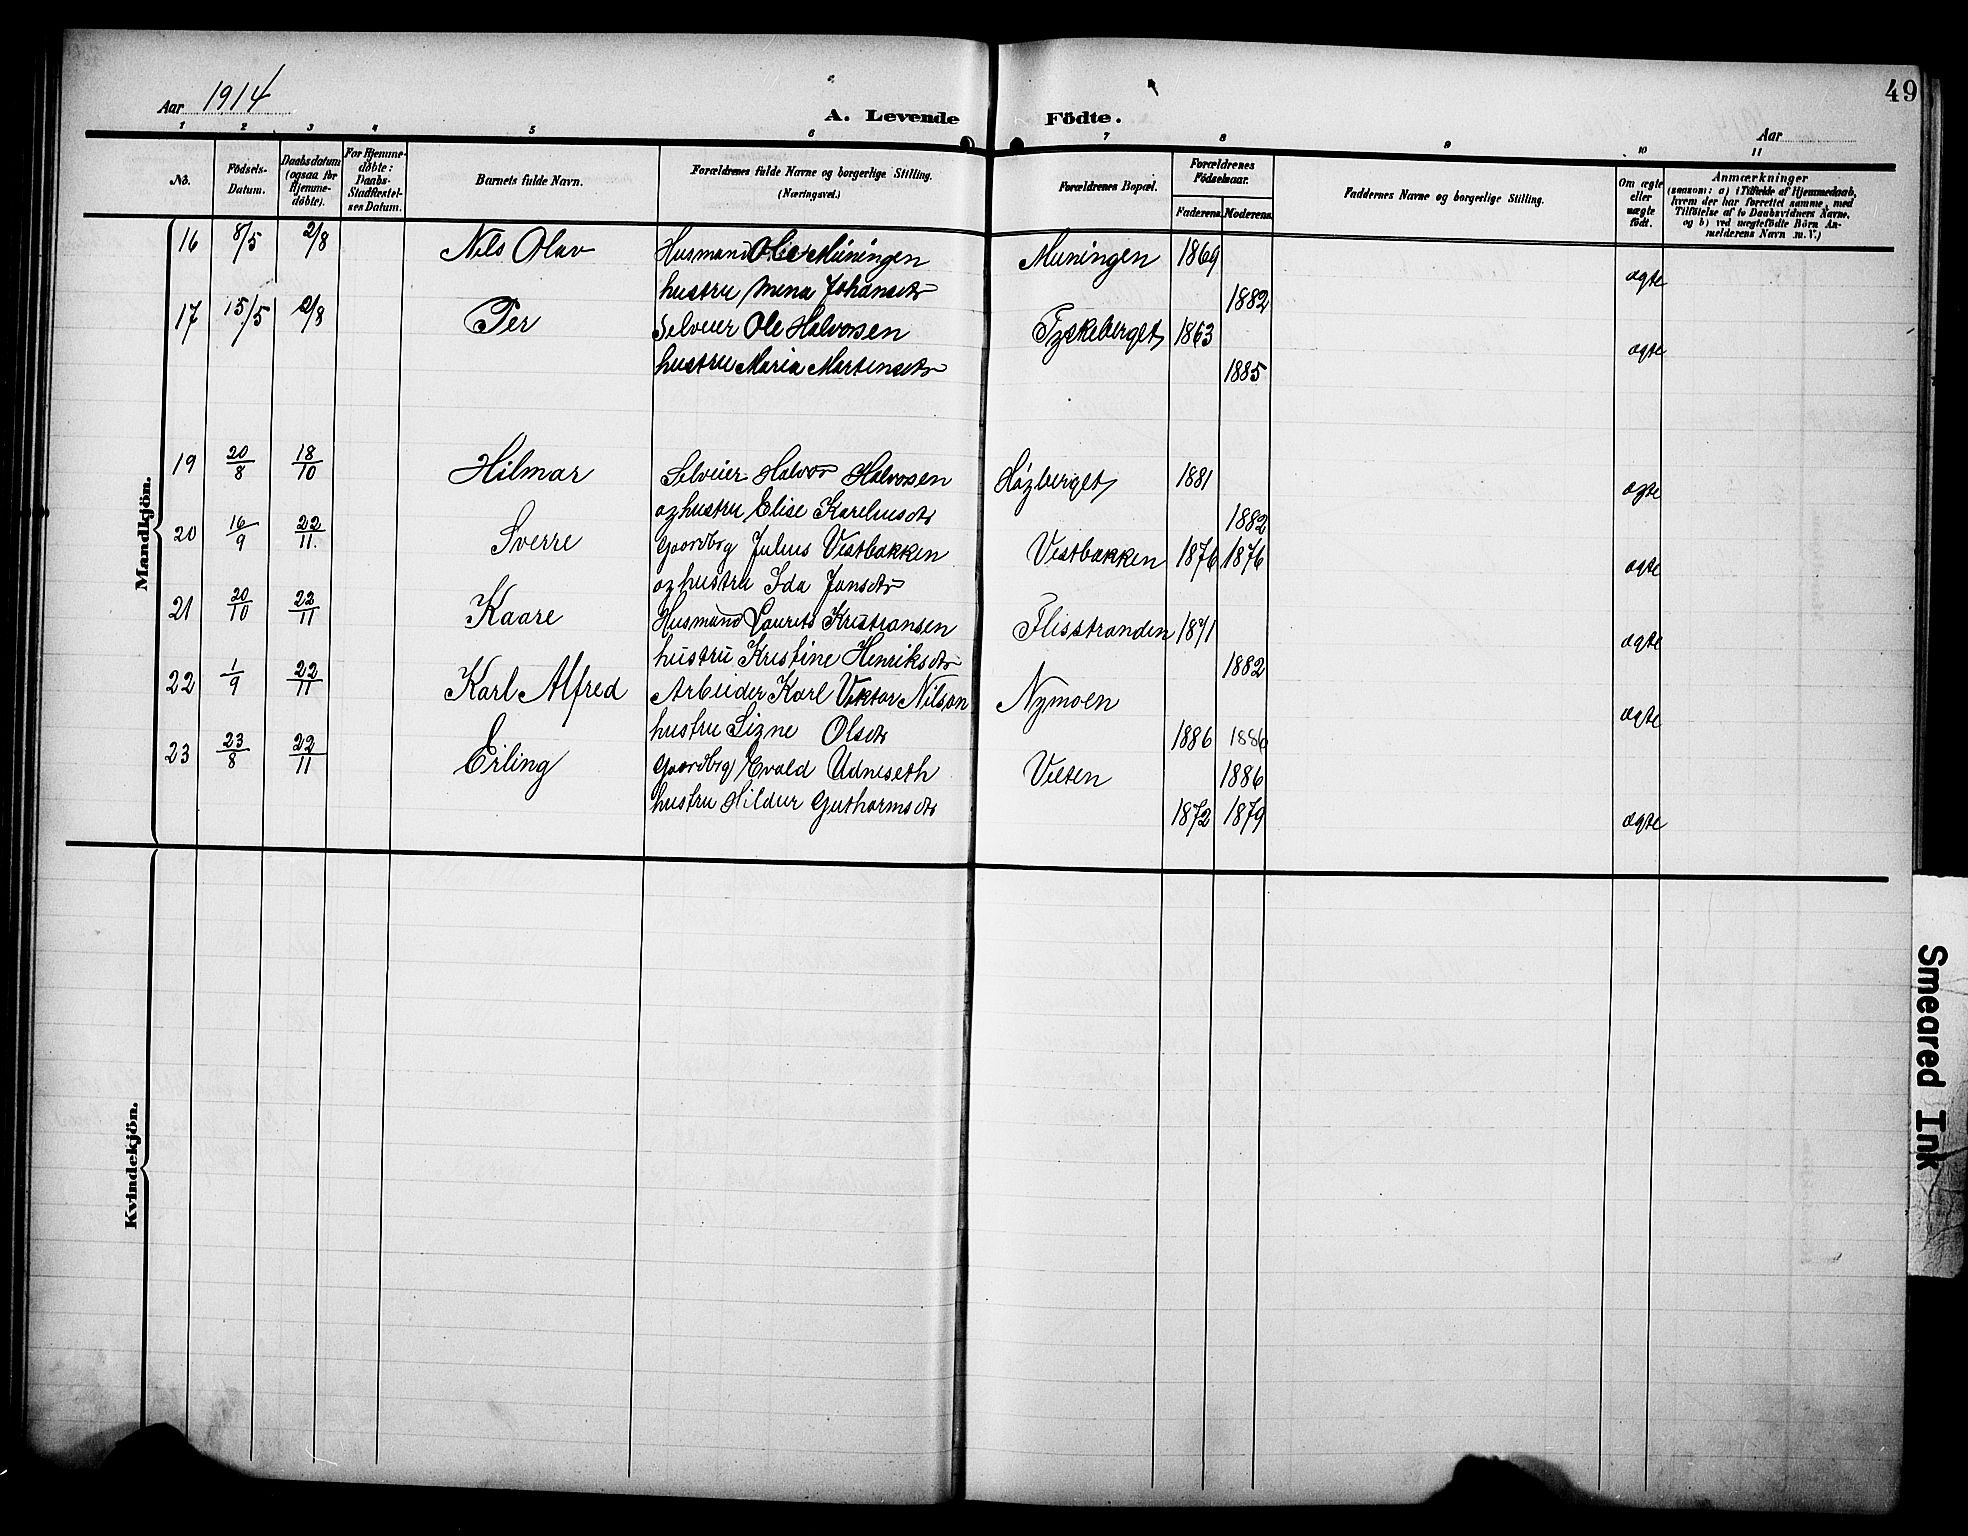 49
Aar 1914
A. Levende Födte.
Aar
1 2 3 4 5 6 7 8 9 10 11
No. Födsels-Datum. Daabsdatum (ogsaa for Hjemme-döbte). For Hjemme-döbte: Daabs-Stadfæstel-ses Datum. Barnets fulde Navn. Forældrenes fulde Navne og borgerlige Stilling. (Næringsvei.) Forældrenes Bopæl. Forældrenes Födselsaar. Faderens Moderens. Faddernes Navne og borgerlige Stilling. Om ægte eller uægte födt. Anmærkninger (saasom: a) i Tilfælde af Hjemmedaab, hvem der har forrettet samme, med Tilföielse af to Daabsvidners Navne, og b) ved uægtefödte Börn An-melderens Navn m. V.)
Mandkjön.
16 8/5 2/8 Nils Olav Husmand Ole Müningen Muningen 1869 ægte
hustru Mina Johansdtr 1882
17 15/5 2/8 Per Selveier Ole Halvorsen Tyskeberget 1863 ægte
hustru Maria Martensdtr 1885
19 20/8 18/10 Hilmar Selveier Halvor Halvorsen Høgberget 1881 ægte
og hustru Elise Kareliusdtr 1882
20 16/9 22/11. Sverre Gaardbrg Julius Vestbakken Vestbakken 1876 1876 ægte
og hustru Ida Jansdtr
21 20/10 22/11 Kaare Husmand Laurits Kristiansen Flisstranden 1871 ægte
hustrü Kristine Henriksdtr 1882
22 1/9 22/11 Karl Alfred Arbeider Karl Viktor Nilsson Nymoen ægte
hustru Signe Olsdtr 1886 1886
23 23/8 22/11 Erling Gaardbrg Evald Udneseth Velten 1886
hustru Hildur Guthormsdtr 1872 1879 ægte
Kvindekjön.
Smeared Ink